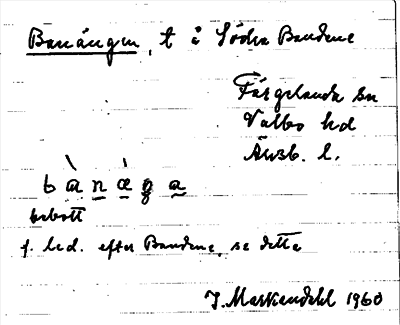 Banängen, t å Södra Bandene
Färgelanda sn
Valbo hd
Älvsb. l.
bànæ̀ŋa
bebott
f. led. efter Bandene, se detta
J. Markendahl 1960